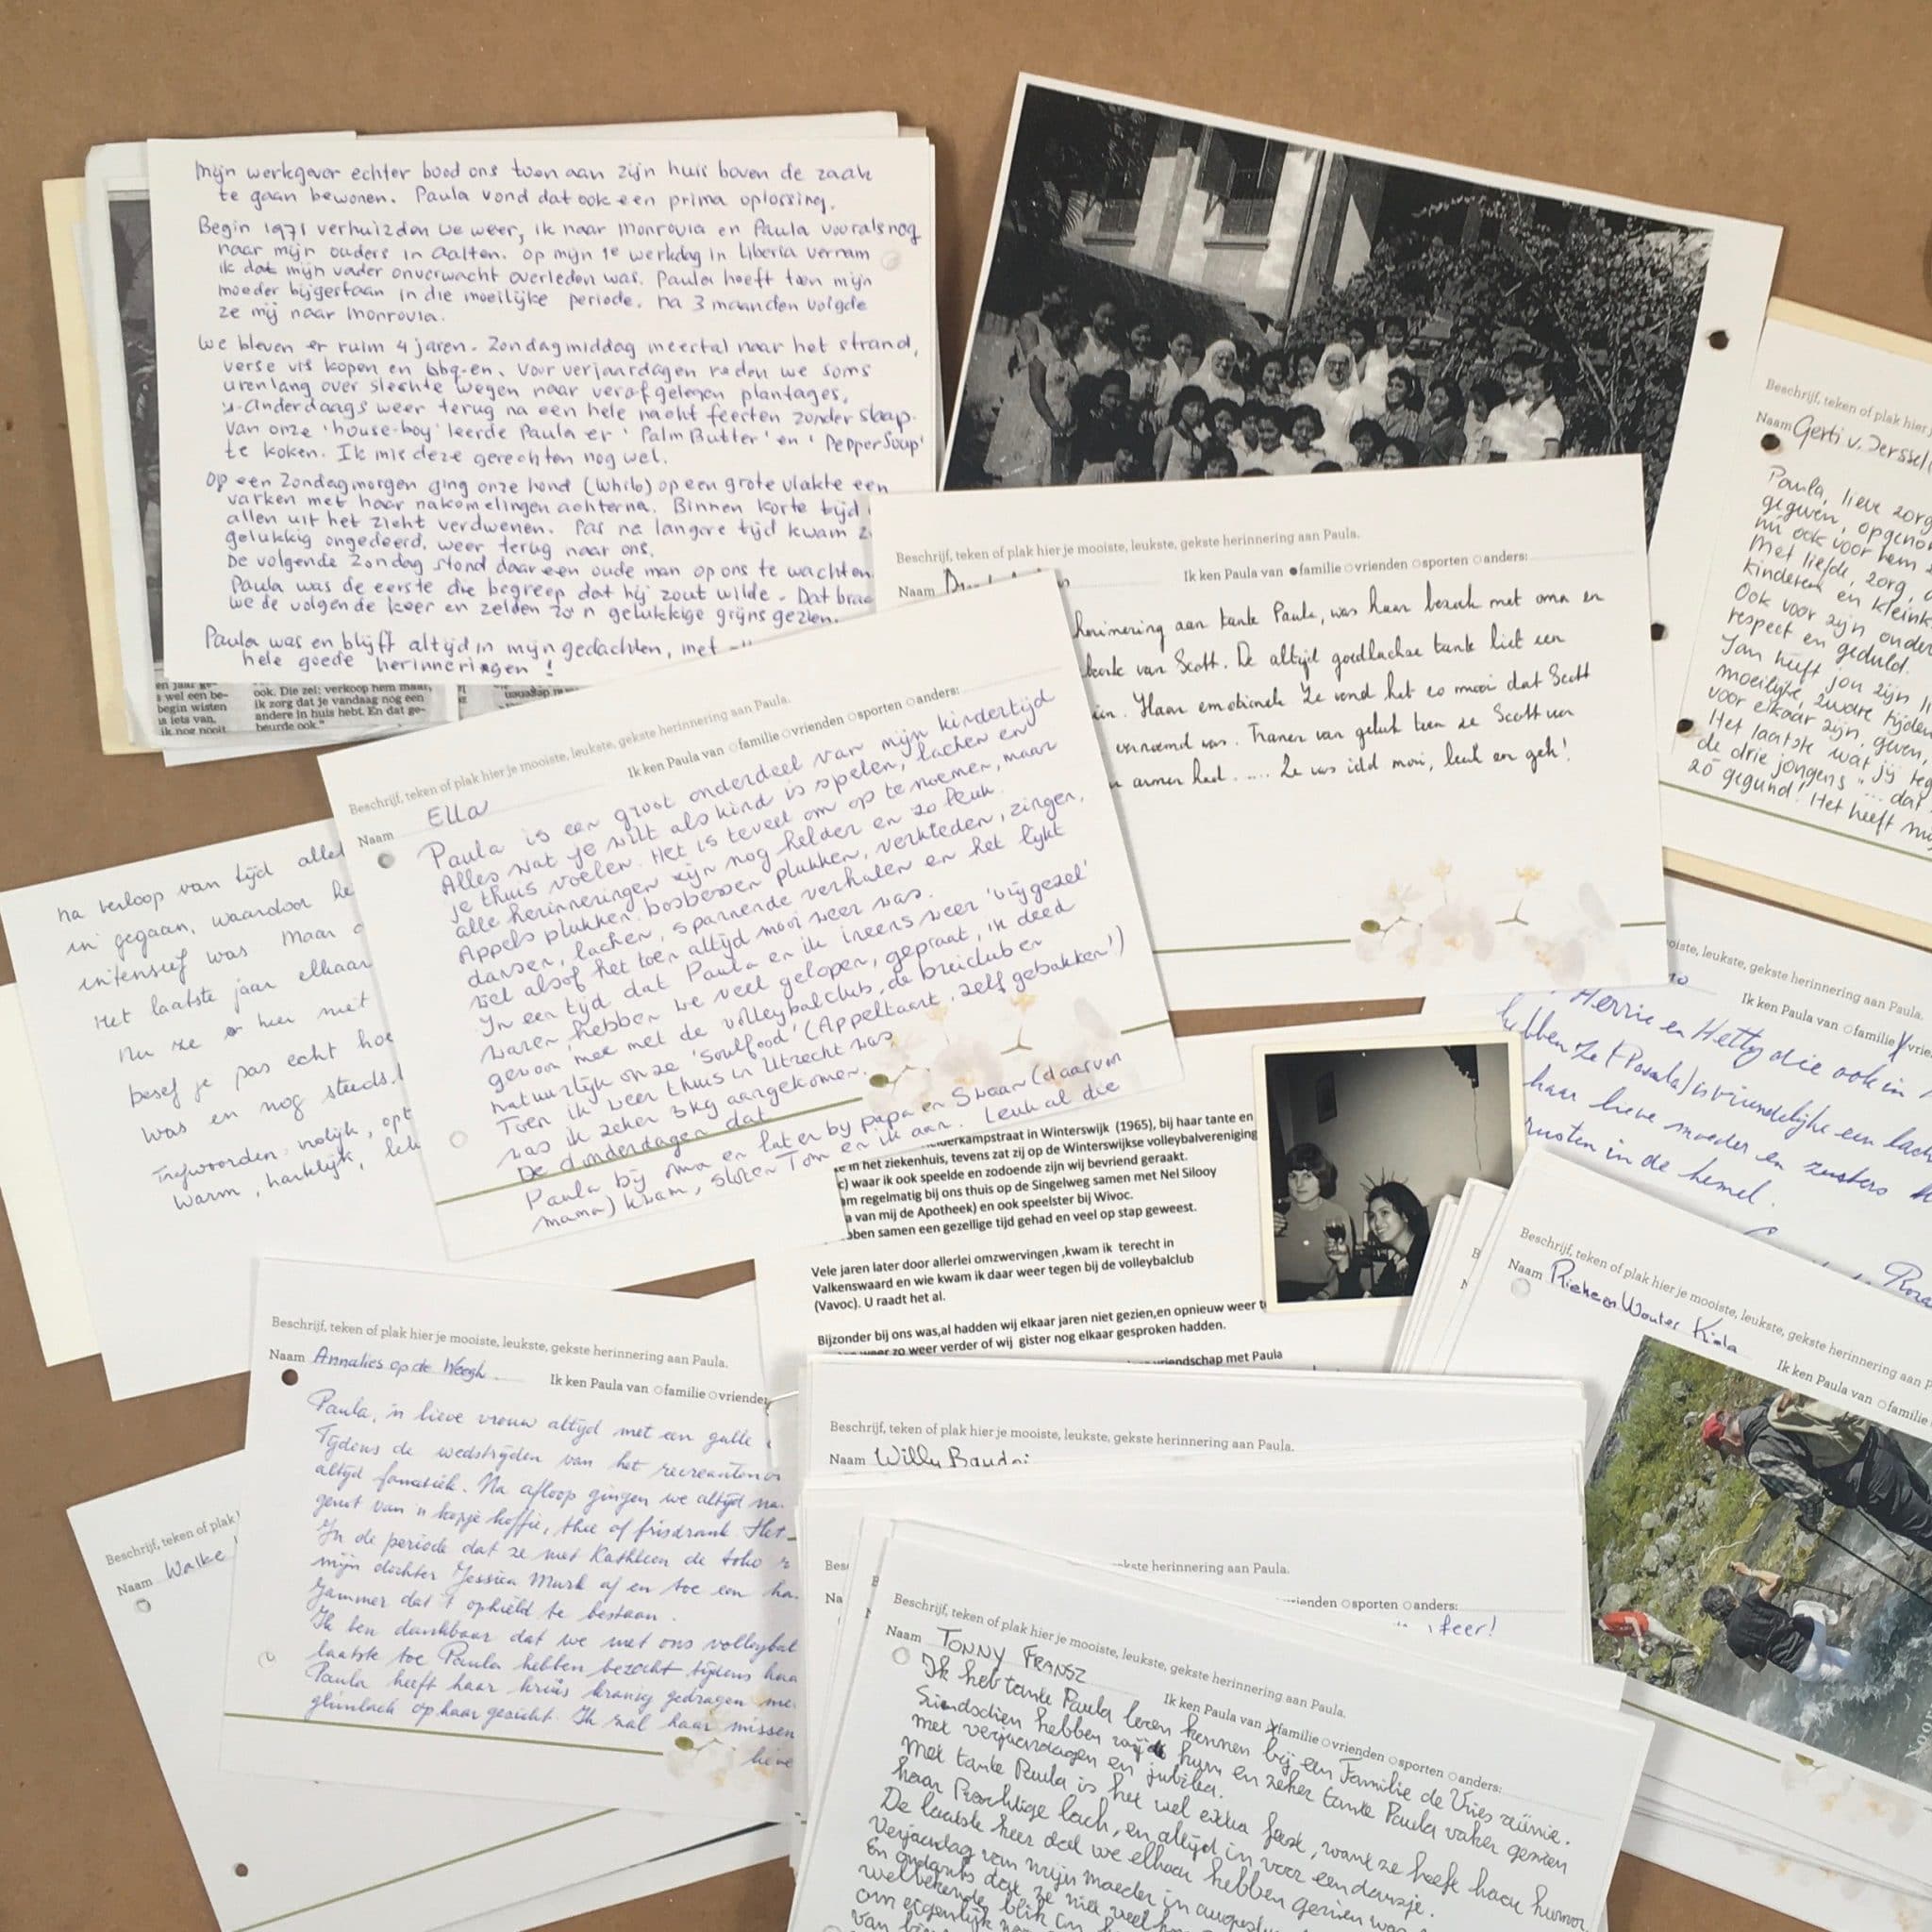 Mijn werkgever echter bood ons toen aan zijn huis boven de zaak
te gaan bewonen. Paula vond dat ook een prima oplossing.
Begin 1971 verhuizden we weer, ik naar Monrovia en Paula vooralsnog
naar mijn ouders in Aalten. Op mijn 1e werkdag in Liberia vernam
ik dat mijn vader onverwacht overleden was. Paula heeft toen mijn
moeder bijgestaan in die moeilijke periode. Na 3 maanden volgde
ze mij naar Monrovia.
We bleven er ruim 4 jaren. Zondagmiddag meestal naar het strand,
verse vis kopen en bbq-en. Voor verjaardagen reden we soms
urenlang over slechte wegen naar verafgelegen plantages,
's-anderdaags weer terug na een hele nacht feesten zonder slaap.
Van onze 'house-boy' leerde Paula er 'Palm Butter' en 'PepperSoup'
te koken. Ik mis deze gerechten nog wel.
Op een Zondagmorgen ging onze hond (Whilo) op een grote vlakte een
varken met haar nakomelingen achterna. Binnen korte tijd
allen uit het zicht verdwenen. Pas na langere tijd kwam
gelukkig ongedeerd, weer terug naar ons.
De volgende Zondag stond daar een oude man op ons te wachten.
Paula was de eerste die begreep dat hij zout wilde. Dat
we de volgende keer en zelden zo'n gelukkige grijns gezien.
Paula was en blijft altijd in mijn gedachten, met
hele goede herinneringen!
wel een be-
begin wisten
is iets van,
ik nog nooit
ook. Die zei: verkoop hem maar,
ik zorg dat je vandaag nog een
andere in huis hebt. En dat ge-
beurde ook."
Beschrijf, teken of plak hier je mooiste, leukste, gekste herinnering aan Paula.
Naam
Ik ken Paula van familie vrienden sporten anders:
herinnering aan tante Paula, was haar bezoek met oma en
van Scott. De altijd goedlachse tante liet een
Haar emotionele Ze vond het zo mooi dat Scott
vernoemd was. Tranen van geluk toen ze Scott
armen had..... Ze was idd mooi, leuk en gek!
Beschrijf, teken of plak hier
Naam Gerti v.
Paula, lieve
gegeven,
ook voor hem
Met liefde, zorg,
kinderen en
Ook voor zijn
respect en geduld.
Jan heeft jou zijn
moeilijke, zware tijden
voor elkaar zijn, geven,
Het laatste wat jij
de drie jongens ... dat
zo gegund! Het heeft
Beschrijf, teken of plak hier je mooiste, leukste, gekste herinnering aan Paula.
Ik ken Paula van familie vrienden sporten anders:
Naam Ella
Paula is een groot onderdeel van mijn kindertijd
Alles wat je wilt als kind is spelen, lachen en
je thuis voelen. Het is teveel om op te noemen, maar
alle herinneringen zijn nog helder en zo leuk.
Appels plukken, bosbessen plukken, verkleden, zingen,
dansen, lachen, spannende verhalen en het lijkt
wel alsof het toen altijd mooi weer was.
In een tijd dat Paula en ik ineens weer 'vrijgezel'
waren hebben we veel gelopen, gepraat, ik deed
gewoon mee met de volleybalclub, de breiclub en
natuurlijk onze 'Soulfood' (Appeltaart, zelf gebakken!)
Toen ik weer thuis in Utrecht was
was ik zeker 3kg aangekomen.
De donderdagen dat
Paula bij oma en later by papa en Swaan (daarom
mama) kwam, sloten Tom en ik aan. Leuk al die
na verloop van tijd
in gegaan, waardoor
intensief was maar
Het laatste jaar elkaar
Nu ze er hier niet
besef je pas echt
was en nog steeds
warm, hartelijk,
leukste, gekste herinnering aan Paula.
Ik ken Paula van familie
Herrie en Hetty die ook in
hebben ze (Paula) is vriendelijke een
haar lieve moeder en zusters
rusten in de hemel.
kampstraat in Winterswijk (1965), bij haar tante en
in het ziekenhuis, tevens zat zij op de Winterswijkse volleybalvereniging
waar ik ook speelde en zodoende zijn wij bevriend geraakt.
regelmatig bij ons thuis op de Singelweg samen met Nel Silooy
van mij de Apotheek) en ook speelster bij Wivoc.
samen een gezellige tijd gehad en veel op stap geweest.
Vele jaren later door allerlei omzwervingen ,kwam ik terecht in
Valkenswaard en wie kwam ik daar weer tegen bij de volleybalclub
(Vavoc). U raadt het al.
Bijzonder bij ons was,al hadden wij elkaar jaren niet gezien,en opnieuw weer
weer zo weer verder of wij gister nog elkaar gesproken hadden.
vriendschap met Paula
Beschrijf, teken of plak hier je mooiste, leukste, gekste herinnering aan
Naam Wouter
Ik ken Paula van familie
Beschrijf, teken of plak hier je mooiste, leukste, gekste herinnering aan Paula.
Naam Annalies op de Weegh
Ik ken Paula van familie vrienden
Paula, 'n lieve vrouw altijd met een gulle
Tijdens de wedstrijden van het
altijd fanatiek. Na afloop gingen we altijd
genot van 'n kopje koffie, thee of frisdrank. Het
In de periode dat ze met Kathleen de toko
mijn dochter Jessica Murk af en toe een
Jammer dat 't ophield te bestaan.
Ik ben dankbaar dat we met ons volleybal
laatste toe Paula hebben bezocht tijdens haar
Paula heeft haar kruis kranig gedragen
glimlach op haar gezicht. Ik zal haar missen
lieve
Beschrijf, teken of plak
Naam Walke
Beschrijf, teken of plak hier je mooiste, leukste, gekste herinnering aan Paula.
Naam Willy
herinnering aan Paula.
vrienden sporten anders:
feer!
Beschrijf, teken of plak hier je mooiste, leukste, gekste herinnering aan Paula.
Naam TONNY FRANSZ
Ik ken Paula van familie vrienden sporten anders:
Ik heb tante Paula leren kennen bij een Familie de Vries reünie.
Sindsdien hebben wij hun en zeker tante Paula vaker gezien
met verjaardagen en jubilea.
Met tante Paula is het wel extra feest, want ze heeft haar humor
haar Prachtige lach, en altijd in voor een dansje.
De laatste keer dat we elkaar hebben gezien was
Verjaardag van mijn moeder in augustus
En ondanks dat ze niet veel
welbekende blik in
om eigenlijk